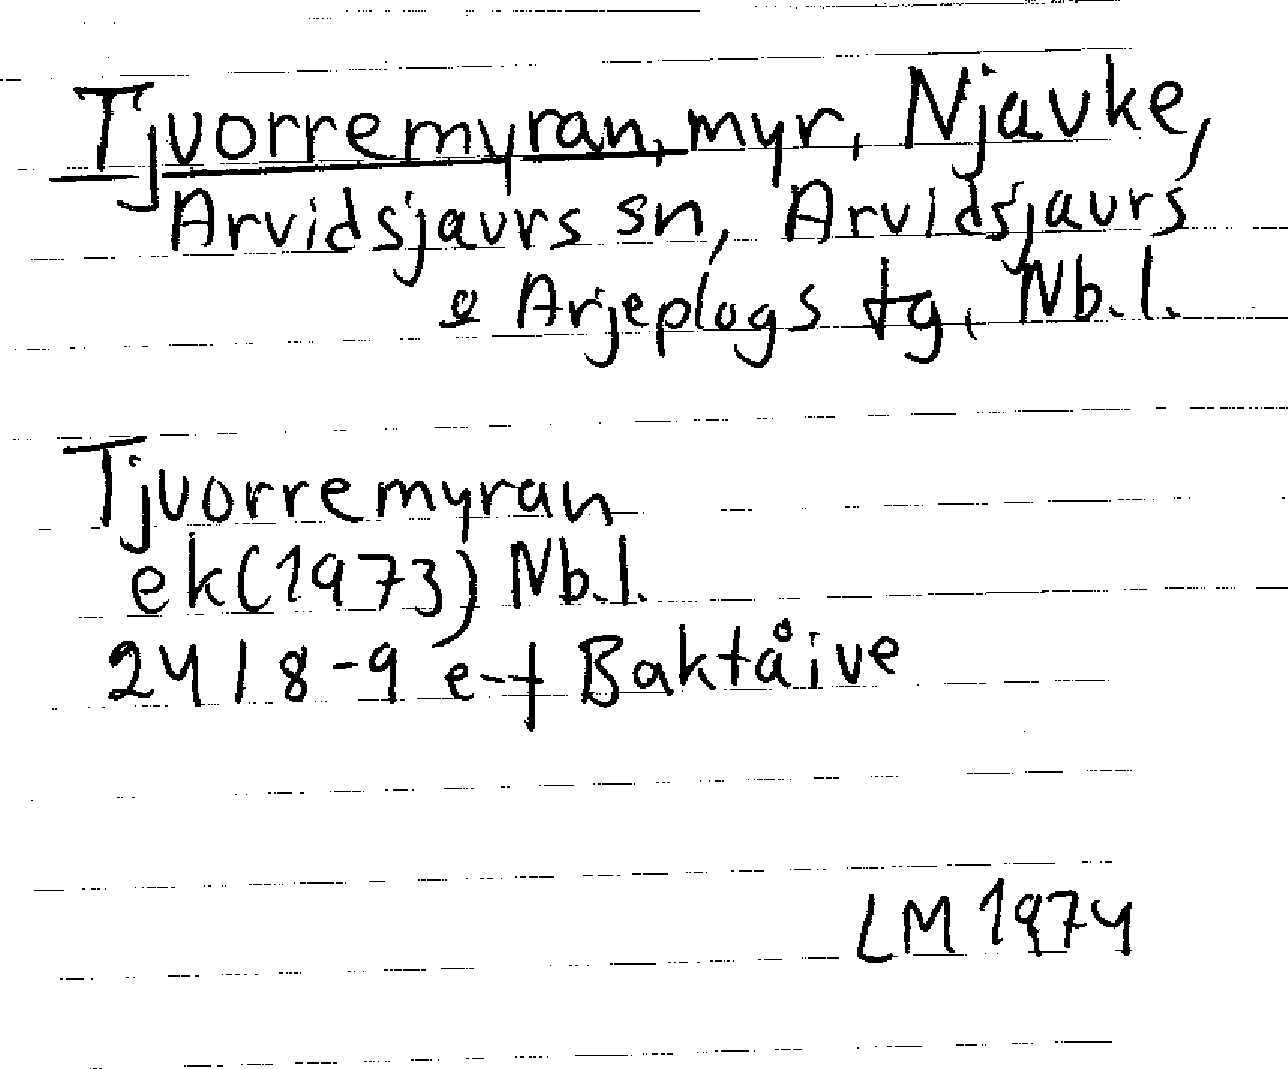 Tjvorremyran, myr, Njavke,
Arvidsjaurs sn, Arvidsjaurs
o Arjeplogs tg, Nb.l.
Tjvorremyran
ek(1973) Nb.l.
24 I 8-9 e-f Baktåive
LM 1974